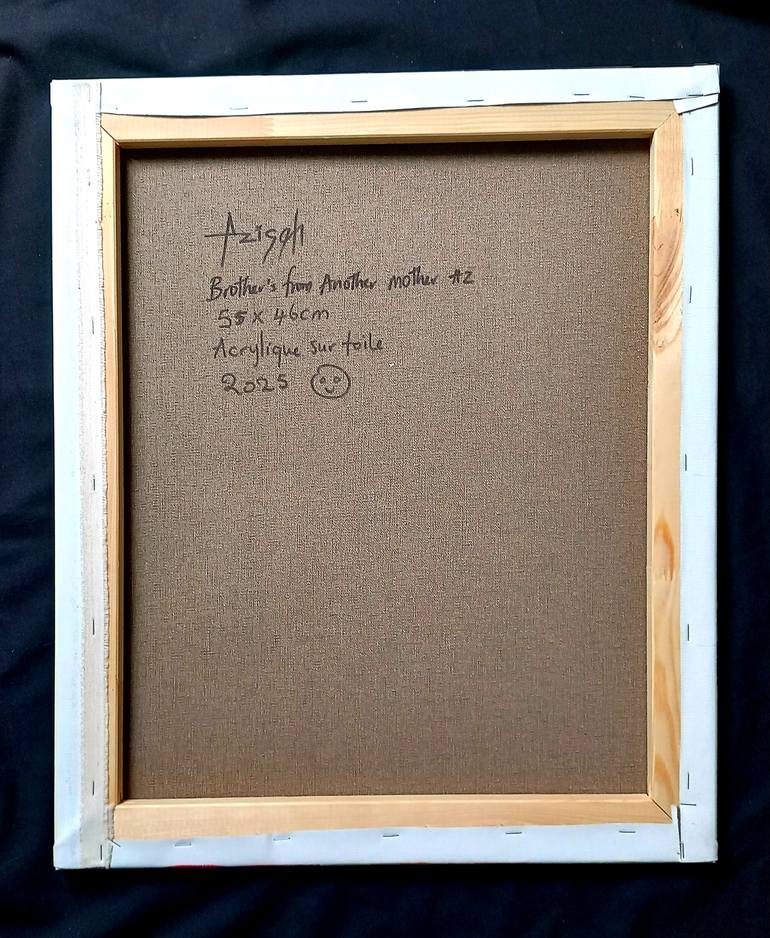 Azigoh
Brother's from Another mother #2
55 x 46cm
Acrylique sur toile
2025